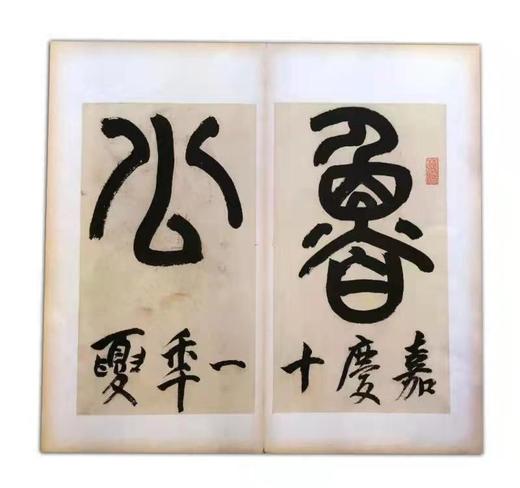 魯
嘉慶十
公
一年夏